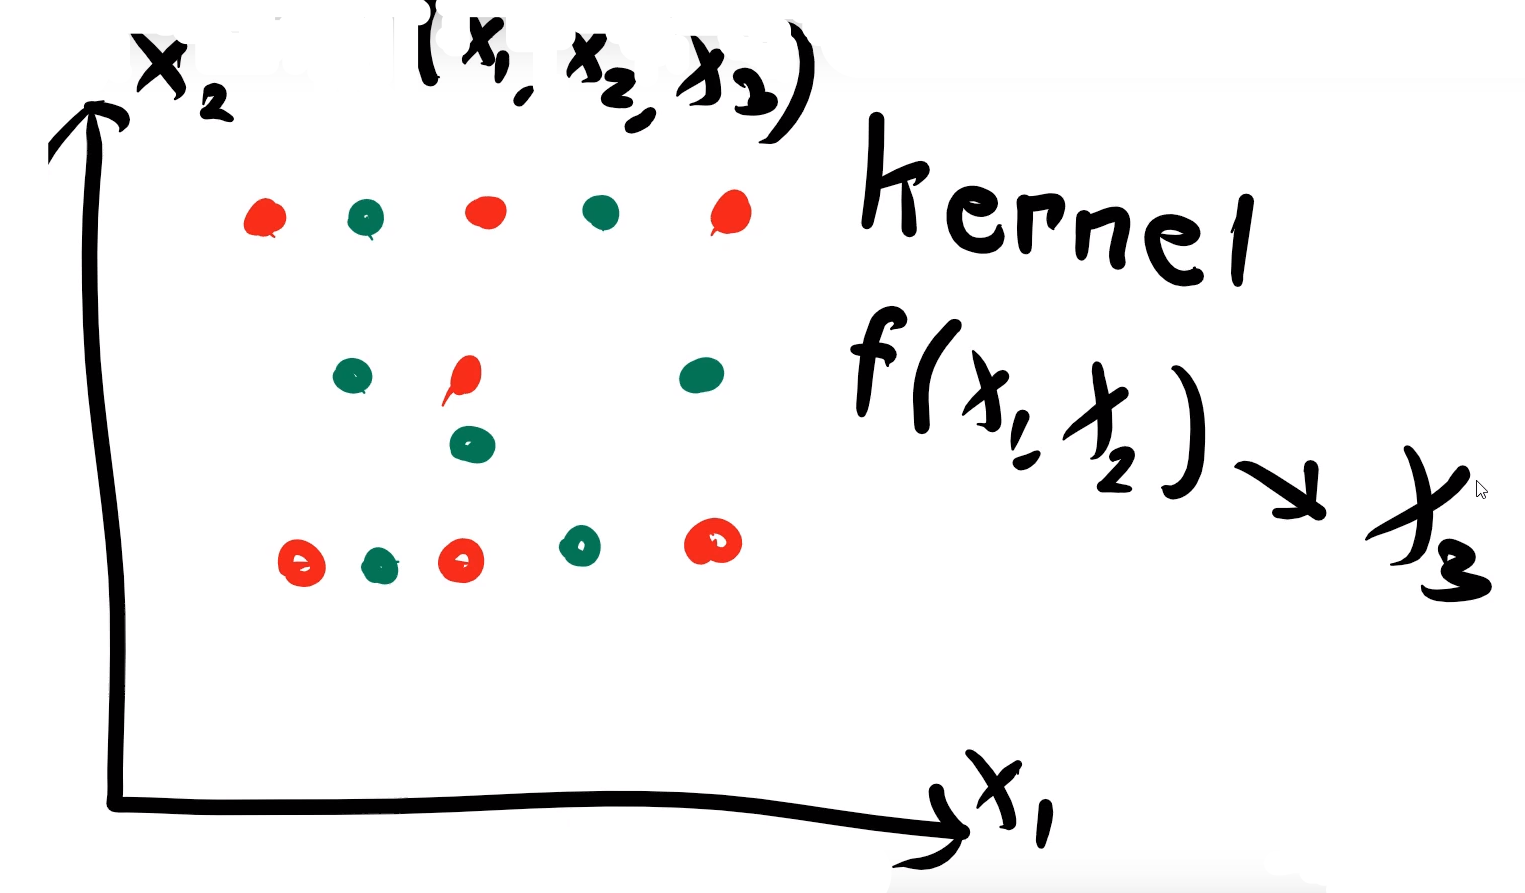 x₂
(x₁, x₂, x₃)
kernel
f(x₁, x₂) ↘ x₃
x₁